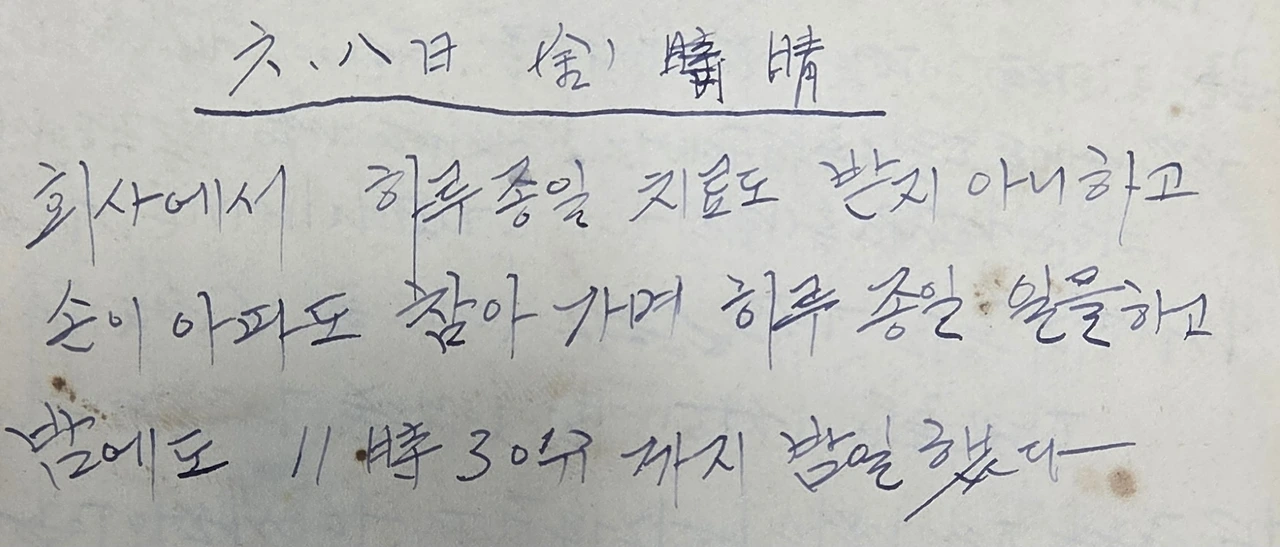 六.八日 (金) 晴
회사에서 하루종일 치료도 받지 아니하고
손이 아파도 참아 가며 하루 종일 일을하고
밤에도 11時30分 까지 밤일 했다